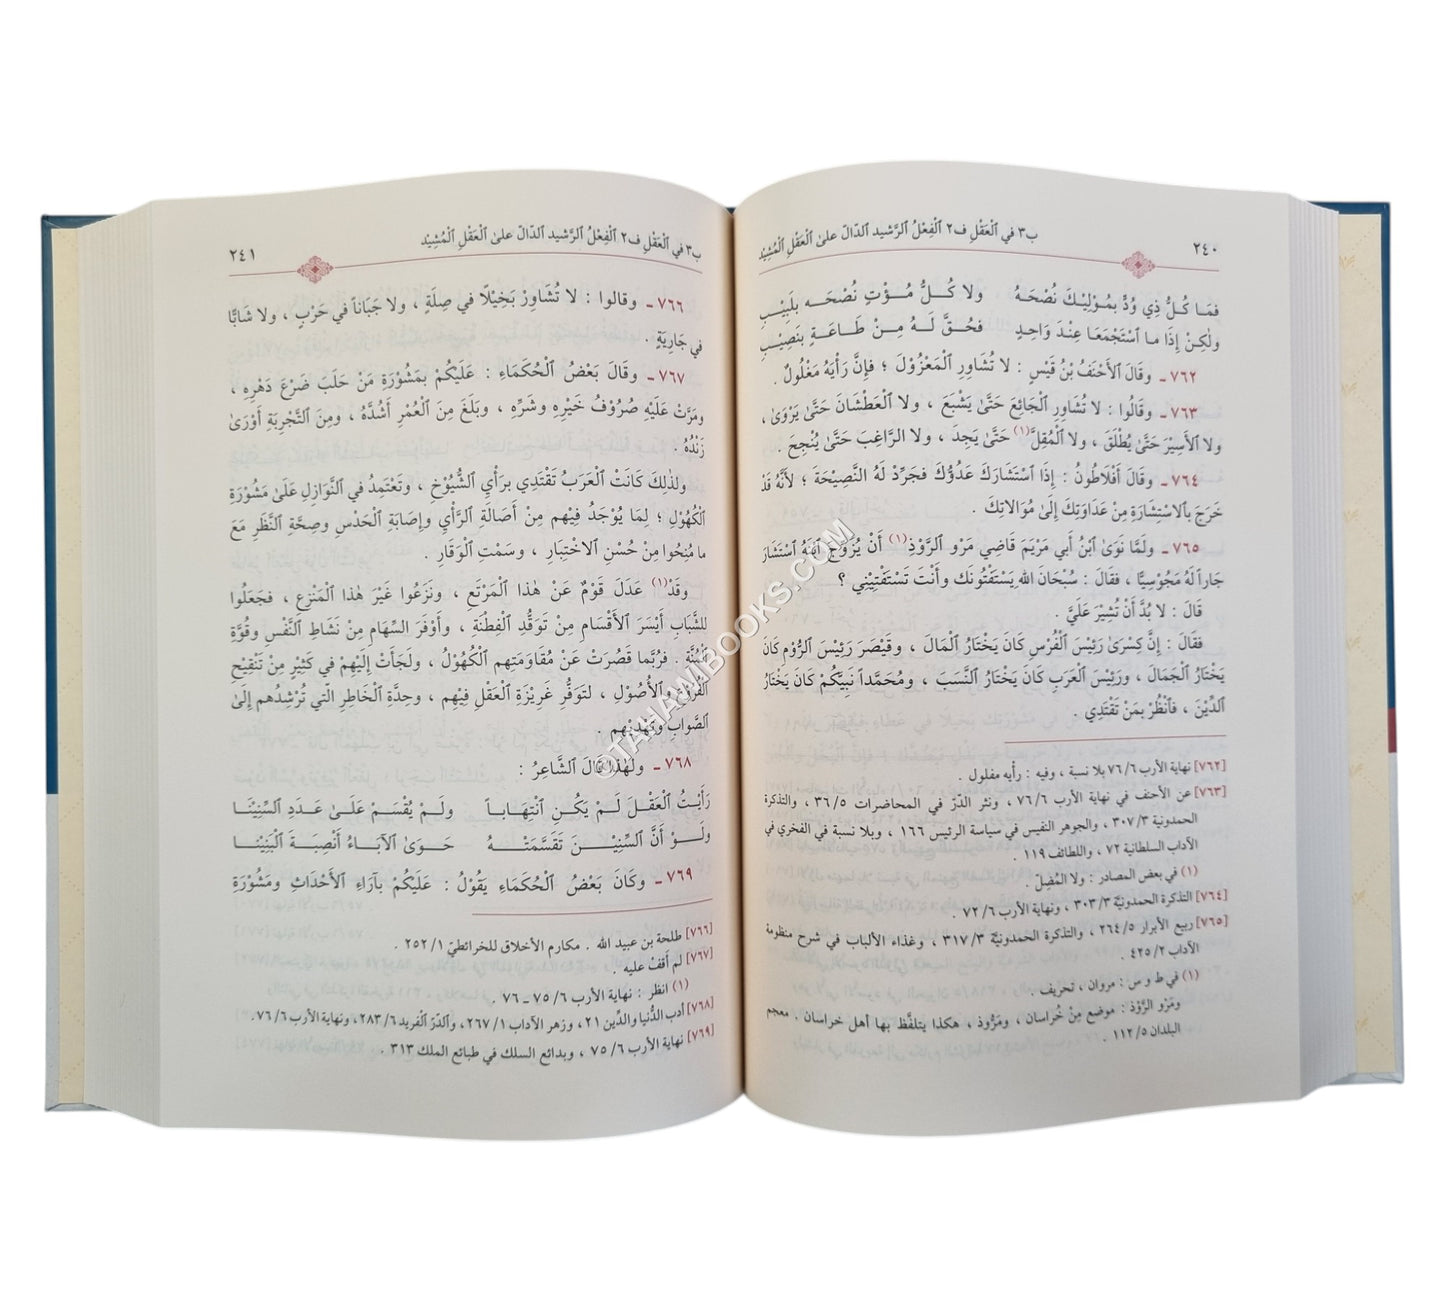 ٢٤٠ ب٣ في ٱلْعَقْلِ ف٢ ٱلْفِعْلُ ٱلرَّشيد ٱلدّالّ علىٰ ٱلْعَقْلِ ٱلْمُشِيْد
فمَا كُلُّ ذِي وُدٍّ بمُوْلِيْكَ نُصْحَهُ ولا كُلُّ مُؤْتٍ نُصْحَـه بلَبِيْبِ
ولٰكِنْ إذَا ما ٱسْتَجْمَعَا عِنْدَ وَاحِدٍ فحُقَّ لَهُ مِـنْ طَـاعَـةٍ بنَصِيْبِ
٧٦٢ـ وقَالَ ٱلأَحْنَفُ بْنُ قَيْسٍ : لا تُشَاوِرِ ٱلْمَعْزُوْلَ ؛ فإنَّ رَأْيَهُ مَغْلُولٌ .
٧٦٣ـ وقَالُوا : لا تُشَاوِرِ ٱلْجَائِعَ حَتَّىٰ يَشْبَعَ ، ولا ٱلْعَطْشَانَ حَتَّىٰ يَرْوَىٰ ،
ولا ٱلأَسِيْرَ حَتَّىٰ يُطْلَقَ ، ولا ٱلْمُقِلَّ(١) حَتَّىٰ يَجِدَ ، ولا ٱلرَّاغِبَ حَتَّىٰ يُنْجِحَ .
٧٦٤ـ وقَالَ أَفْلَاطُونُ : إذَا ٱسْتَشَارَكَ عَدُوُّكَ فجَرِّدْ لَهُ ٱلنَّصِيْحَةَ ؛ لأَنَّهُ قَدْ
خَرَجَ بٱلاسْتِشَارَةِ مِنْ عَدَاوَتِكَ إلَىٰ مُوَالاتِكَ .
٧٦٥ـ ولَمَّا نَوَىٰ ٱبْنُ أَبي مَرْيَمَ قَاضِي مَرْو ٱلرَّوْذِ(١) أَنْ يُزَوِّجَ ٱبْنَهُ ٱسْتَشَارَ
جَاراً لَهُ مَجُوْسِيًّا ، فقَالَ : سُبْحَانَ اللهِ يَسْتَفْتُونَك وأَنْتَ تَسْتَفْتِيْنِي ؟
قَالَ : لا بُدَّ أَنْ تُشِيْرَ عَلَيَّ .
فقَالَ : إنَّ كِسْرَىٰ رَئِيْسَ ٱلْفُرْسِ كَانَ يَخْتَارُ ٱلْمَالَ ، وقَيْصَرَ رَئِيْسَ ٱلرُّوْمِ كَانَ
يَخْتَارُ ٱلْجَمَالَ ، ورَئِيْسَ ٱلْعَرَبِ كَانَ يَخْتَارُ ٱلنَّسَبَ ، ومُحَمَّداً نَبِيَّكُمْ كَانَ يَخْتَارُ
ٱلدِّيْنَ ، فٱنْظُرْ بمَنْ تَقْتَدِي .
[٧٦٢] نهاية الأرب ٧٦/٦ بلا نسبة ، وفيه : رأيه مفلول .
[٧٦٣] عن الأحنف في نهاية الأرب ٧٦/٦ ، ونثر الدّرّ في المحاضرات ٣٦/٥ ، والتذكرة
الحمدونية ٣٠٧/٣ ، والجوهر النفيس في سياسة الرئيس ١٦٦ ، وبلا نسبة في الفخري في
الآداب السلطانية ٧٢ ، واللطائف ١١٩ .
(١) في بعض المصادر : ولا المُضِلّ .
[٧٦٤] التذكرة الحمدونيّة ٣٠٣/٣ ، ونهاية الأرب ٧٢/٦ .
[٧٦٥] ربيع الأبرار ٢٦٤/٥ ، والتذكرة الحمدونيّة ٣١٧/٣ ، وغذاء الألباب في شرح منظومة
الآداب ٤٣٥/٢ .
(١) في ط و س : مروان ، تحريف .
ومَرْو الرَّوْذ : موضع مِنْ خُراسان ، ومَرُّوذ ، هكذا يتلفَّظ بها أهل خراسان . معجم
البلدان ١١٢/٥ .
ب٣ في ٱلْعَقْلِ ف٢ ٱلْفِعْلُ ٱلرَّشيد ٱلدّالّ علىٰ ٱلْعَقْلِ ٱلْمُشِيْد ٢٤١
٧٦٦ـ وقالوا : لا تُشَاوِرْ بَخِيْلًا في صِلَةٍ ، ولا جَبَاناً في حَرْبٍ ، ولا شَابًّا
في جَارِيَةٍ .
٧٦٧ـ وقَالَ بَعْضُ ٱلْحُكَمَاءِ : عَلَيْكُم بمَشُوْرَةِ مَنْ حَلَبَ ضَرْعَ دَهْرِهِ ،
ومَرَّتْ عَلَيْهِ صُرُوْفُ خَيْرِهِ وشَرِّهِ ، وبَلَغَ مِنَ ٱلْعُمْرِ أَشُدَّهُ ، ومِنَ ٱلتَّجْرِبَةِ أَوْرَىٰ
زَنْدُهُ .
ولذٰلِكَ كَانَتْ ٱلْعَرَبُ تَقْتَدِي برَأْيِ ٱلشُّيُوْخِ ، وتَعْتَمِدُ في ٱلنَّوَازِلِ عَلَىٰ مَشُوْرَةِ
ٱلْكُهُوْلِ ؛ لِمَا يُوْجَدُ فيْهِم مِنْ أَصَالَةِ ٱلرَّأْيِ وإصَابَةِ ٱلْحَدْسِ وصِحَّةِ ٱلنَّظَرِ مَعَ
ما مُنِحُوا مِنْ حُسْنِ ٱلاخْتِبَارِ ، وسَمْتِ ٱلْوَقَارِ .
وقَدْ(١) عَدَلَ قَوْمٌ عَنْ هٰذا ٱلْمَرْتَعِ ، ونَزَعُوا غَيْرَ هٰذا ٱلْمَنْزِعِ ، فجَعَلُوا
للشَّبَابِ أَيْسَرَ ٱلأَقْسَامِ مِنْ تَوَقُّدِ ٱلْفِطْنَةِ ، وأَوْفَرَ ٱلسِّهَامِ مِنْ نَشَاطِ ٱلنَّفْسِ وقُوَّةِ
ٱلْمُنَّةِ . فرُبَّما قَصُرَتْ عَنْ مُقَاوَمَتِهِم ٱلْكُهُوْلُ ، ولَجَأَتْ إلَيْهِمْ في كَثِيْرٍ مِنْ تَنْقِيْحِ
ٱلْفُرُوْعِ وٱلأُصُوْلِ ، لتَوَفُّرِ غَرِيْزَةِ ٱلْعَقْلِ فيْهِم ، وحِدَّةِ ٱلْخَاطِرِ ٱلَّتي تُرْشِدُهم إلَىٰ
ٱلصَّوَابِ وتَهْدِيْهِم .
٧٦٨ـ ولهٰذا قَالَ ٱلشَّاعِرُ :
رَأَيْتُ ٱلْعَقْلَ لَمْ يَكُنِ ٱنْتِهَابَا ولَمْ يُقْسَمْ عَلَىٰ عَدَدِ ٱلسِّنِيْنَا
ولَوْ أَنَّ ٱلسِّنِيْـنَ تَقَسَّمَتْـهُ حَـوَىٰ ٱلآبَـاءُ أَنْصِبَـةَ ٱلْبَنِيْنَـا
٧٦٩ـ وكَانَ بَعْضُ ٱلْحُكَمَاءِ يَقُوْلُ : عَلَيْكُمْ بآرَاءِ ٱلأَحْدَاثِ ومَشُوْرَةِ
[٧٦٦] طلحة بن عبيد الله . مكارم الأخلاق للخرائطيّ ٢٥٢/١ .
[٧٦٧] لم أقفْ عليه .
(١) انظر : نهاية الأرب ٧٥/٦ ـ ٧٦ .
[٧٦٨] أدب الدُّنيا والدِّين ٢١ ، وزهر الآداب ٢٦٧/١ ، والدّرّ الفريد ٢٨٣/٦ ، ونهاية الأرب ٧٦/٦ .
[٧٦٩] نهاية الأرب ٧٥/٦ ، وبدائع السلك في طبائع الملك ٣١٣ .
©TAHAWIBOOKS.COM